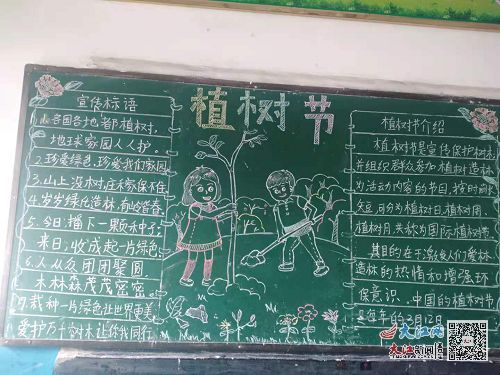 植树节
宣传标语
1.各国各地都植树,
地球家园人人护。
2.珍爱绿色,珍爱我们家园
3.山上没树,庄稼保不住
4.岁岁绿化造林,年年踏春
5.今日:播下一颗种子;
来日:收成起一片绿色
6.人从众团团聚圆
木林森茂茂密密。
7.栽种一片绿色让世界更美
爱护万千树木让你我同行。
植树节介绍
植树节是宣传保护树木
并组织群众参加植树造林
为活动内容的节日,按时间长
短可分为植树日、植树周、
植树月,共称为国际植树节
其目的在于激发人们爱林
造林的热情和增强环
保意识、中国的植树节
是每年的3月12日
大江网
大江新闻